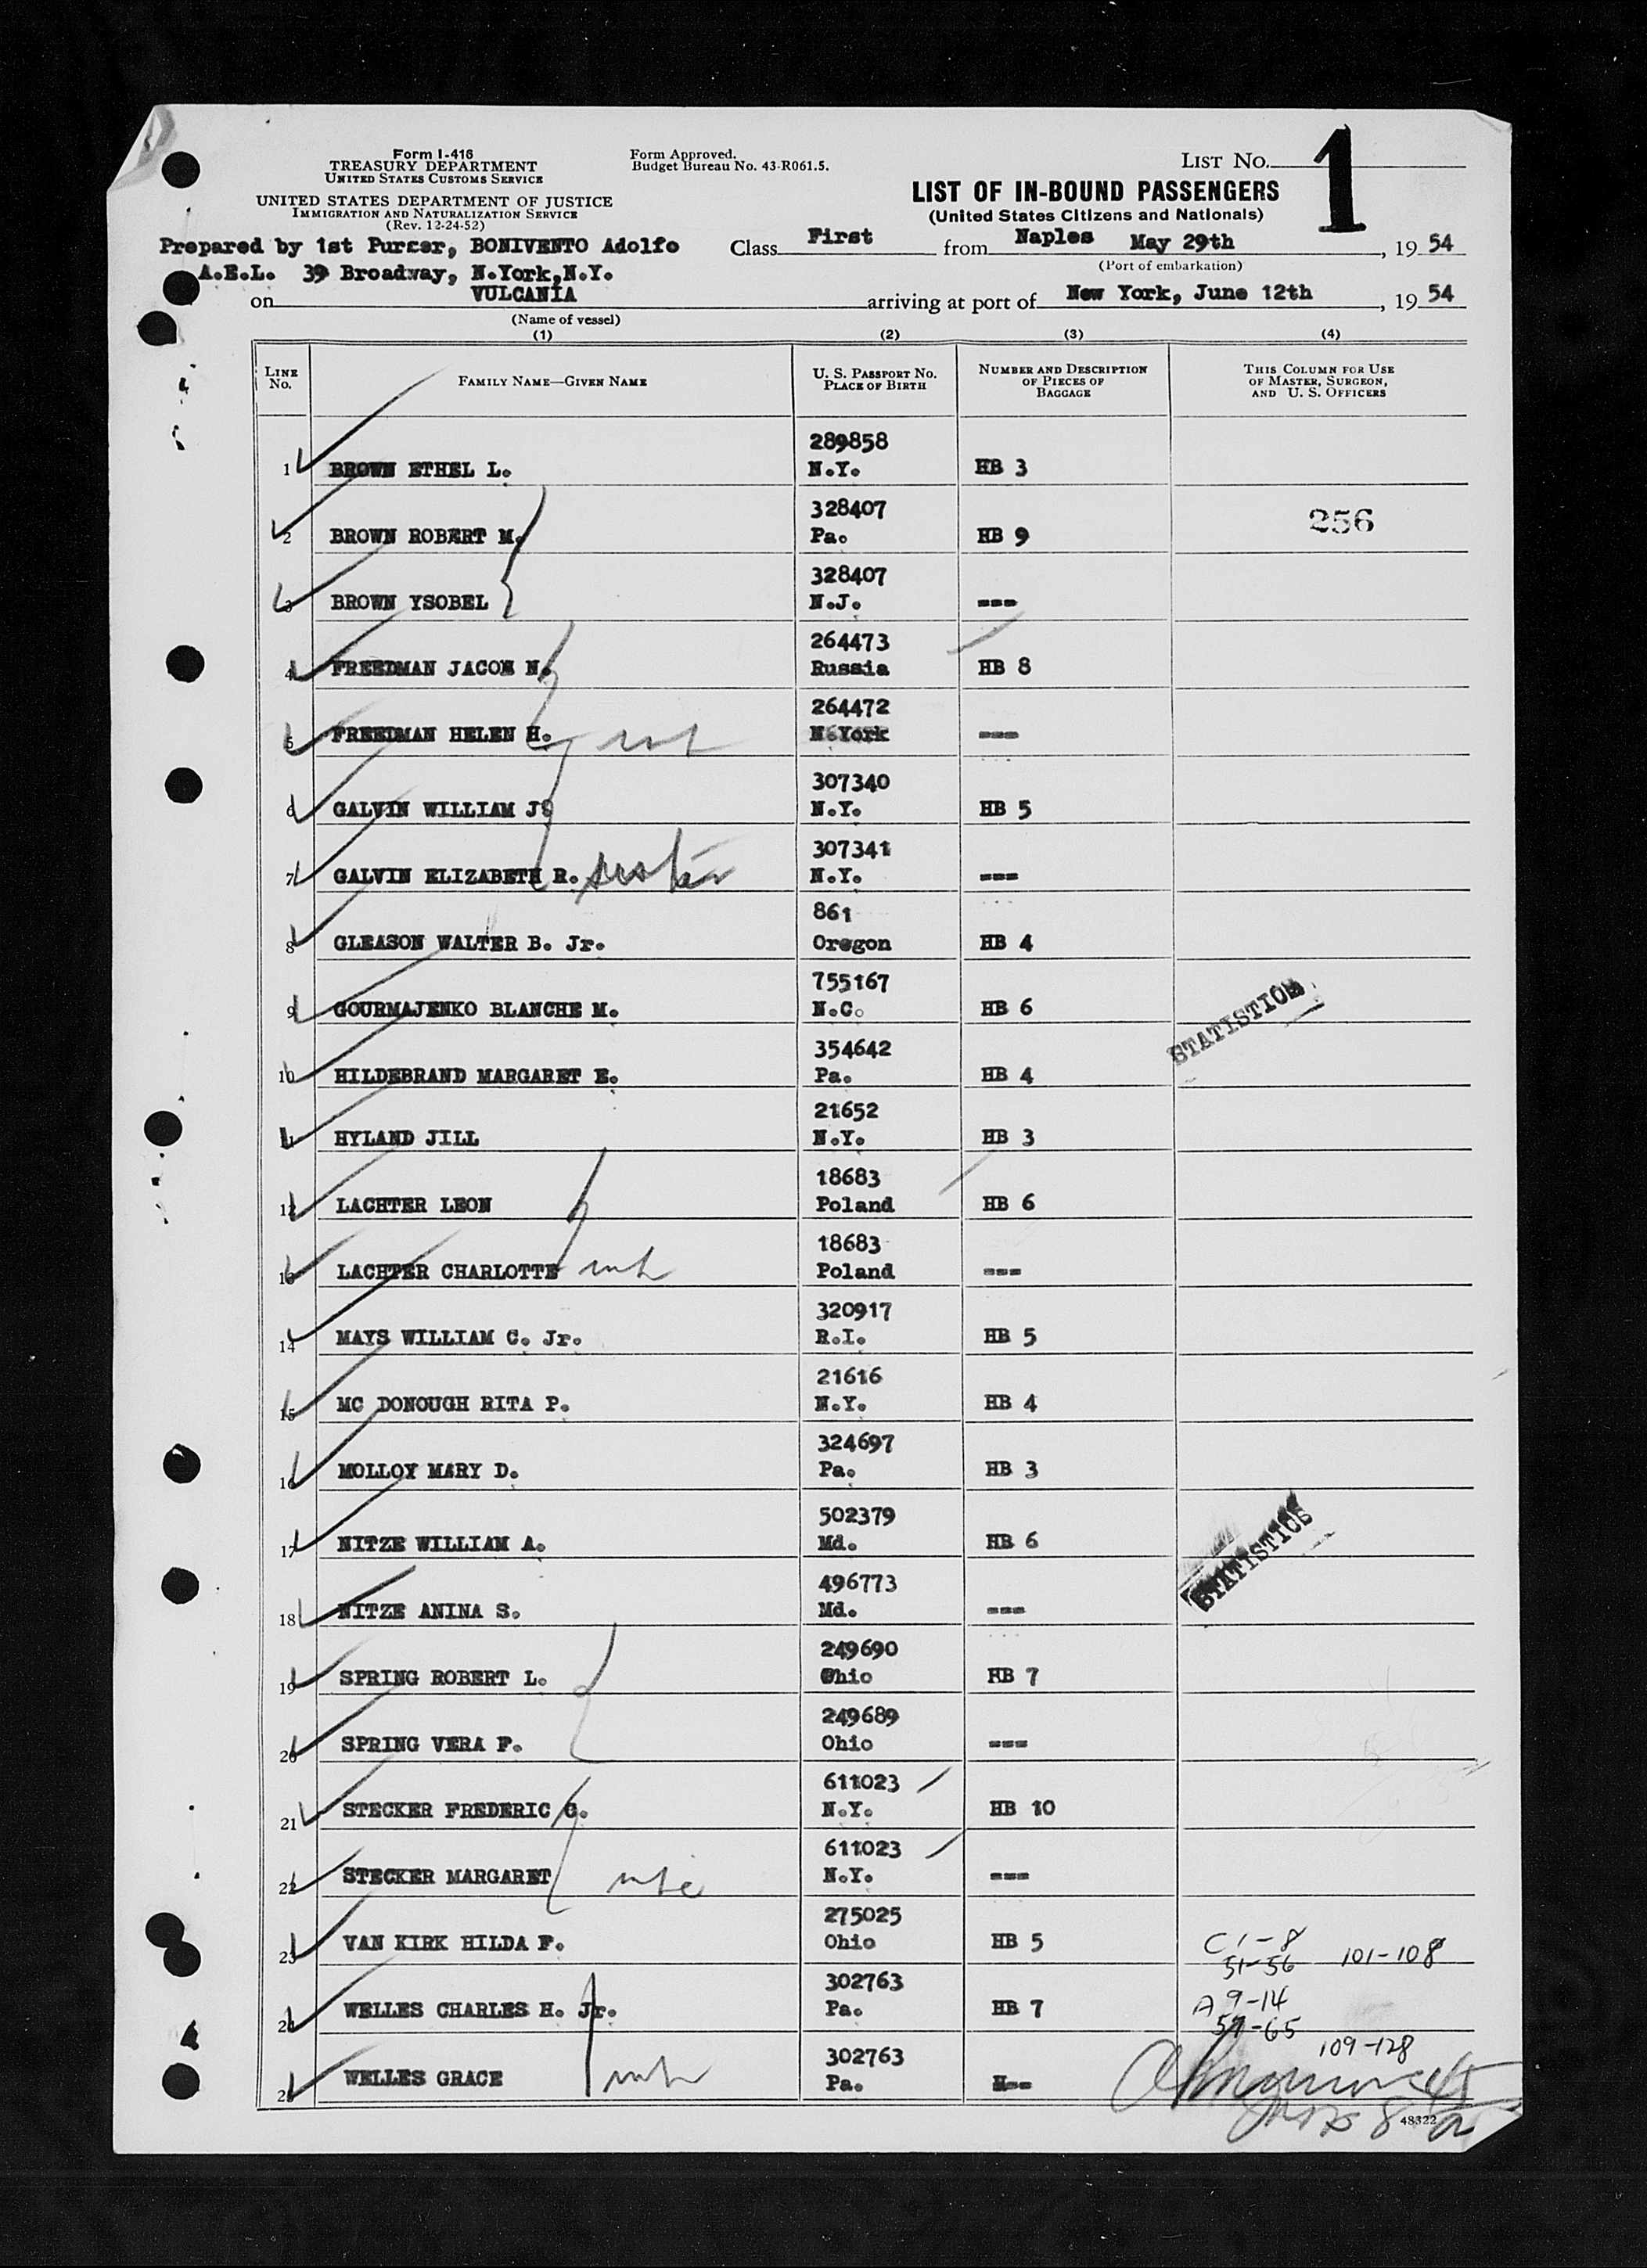 Form I-416
TREASURY DEPARTMENT
UNITED STATES CUSTOMS SERVICE
UNITED STATES DEPARTMENT OF JUSTICE
IMMIGRATION AND NATURALIZATION SERVICE
(Rev. 12-24-52)
Form Approved.
Budget Bureau No. 43-R061.5.
LIST NO. 1
LIST OF IN-BOUND PASSENGERS
(United States Citizens and Nationals)
Prepared by 1st Purser, BONIVENTO Adolfo
A.E.L. 39 Broadway, N.York,N.Y.
Class First from Naples May 29th, 19 54
(Port of embarkation)
on VULCANIA arriving at port of New York, June 12th, 19 54
(Name of vessel)
(1) (2) (3) (4)
LINE No. FAMILY NAME—GIVEN NAME U. S. PASSPORT NO. PLACE OF BIRTH NUMBER AND DESCRIPTION OF PIECES OF BAGGAGE THIS COLUMN FOR USE OF MASTER, SURGEON, AND U. S. OFFICERS
289858
1 BROWN ETHEL L. N.Y. HB 3
328407 256
2 BROWN ROBERT M. Pa. HB 9
328407
3 BROWN YSOBEL N.J. ---
264473
4 FREEDMAN JACOB N. Russia HB 8
264472
5 FREEDMAN HELEN H. N.York ---
307340
6 GALVIN WILLIAM J. N.Y. HB 5
307341
7 GALVIN ELIZABETH R. sister N.Y. ---
861
8 GLEASON WALTER B. Jr. Oregon HB 4
755167
9 GOURMAJENKO BLANCHE M. N.C. HB 6
STATISTICS
354642
10 HILDEBRAND MARGARET E. Pa. HB 4
21652
11 HYLAND JILL N.Y. HB 3
18683
12 LACHTER LEON Poland HB 6
18683
13 LACHTER CHARLOTTE Poland ---
320917
14 MAYS WILLIAM C. Jr. R.I. HB 5
21616
15 MC DONOUGH RITA P. N.Y. HB 4
324697
16 MOLLOY MARY D. Pa. HB 3
502379
17 NITZE WILLIAM A. Md. HB 6
STATISTICS
496773
18 NITZE ANINA S. Md. ---
249690
19 SPRING ROBERT L. Ohio HB 7
249689
20 SPRING VERA F. Ohio ---
611023
21 STECKER FREDERIC G. N.Y. HB 10
611023
22 STECKER MARGARET N.Y. ---
275025
23 VAN KIRK HILDA F. Ohio HB 5 C 1-8
51-56 101-108
302763
24 WELLES CHARLES H. Jr. Pa. HB 7 A 9-14
57-65
302763 109-128
25 WELLES GRACE Pa. ---
48322